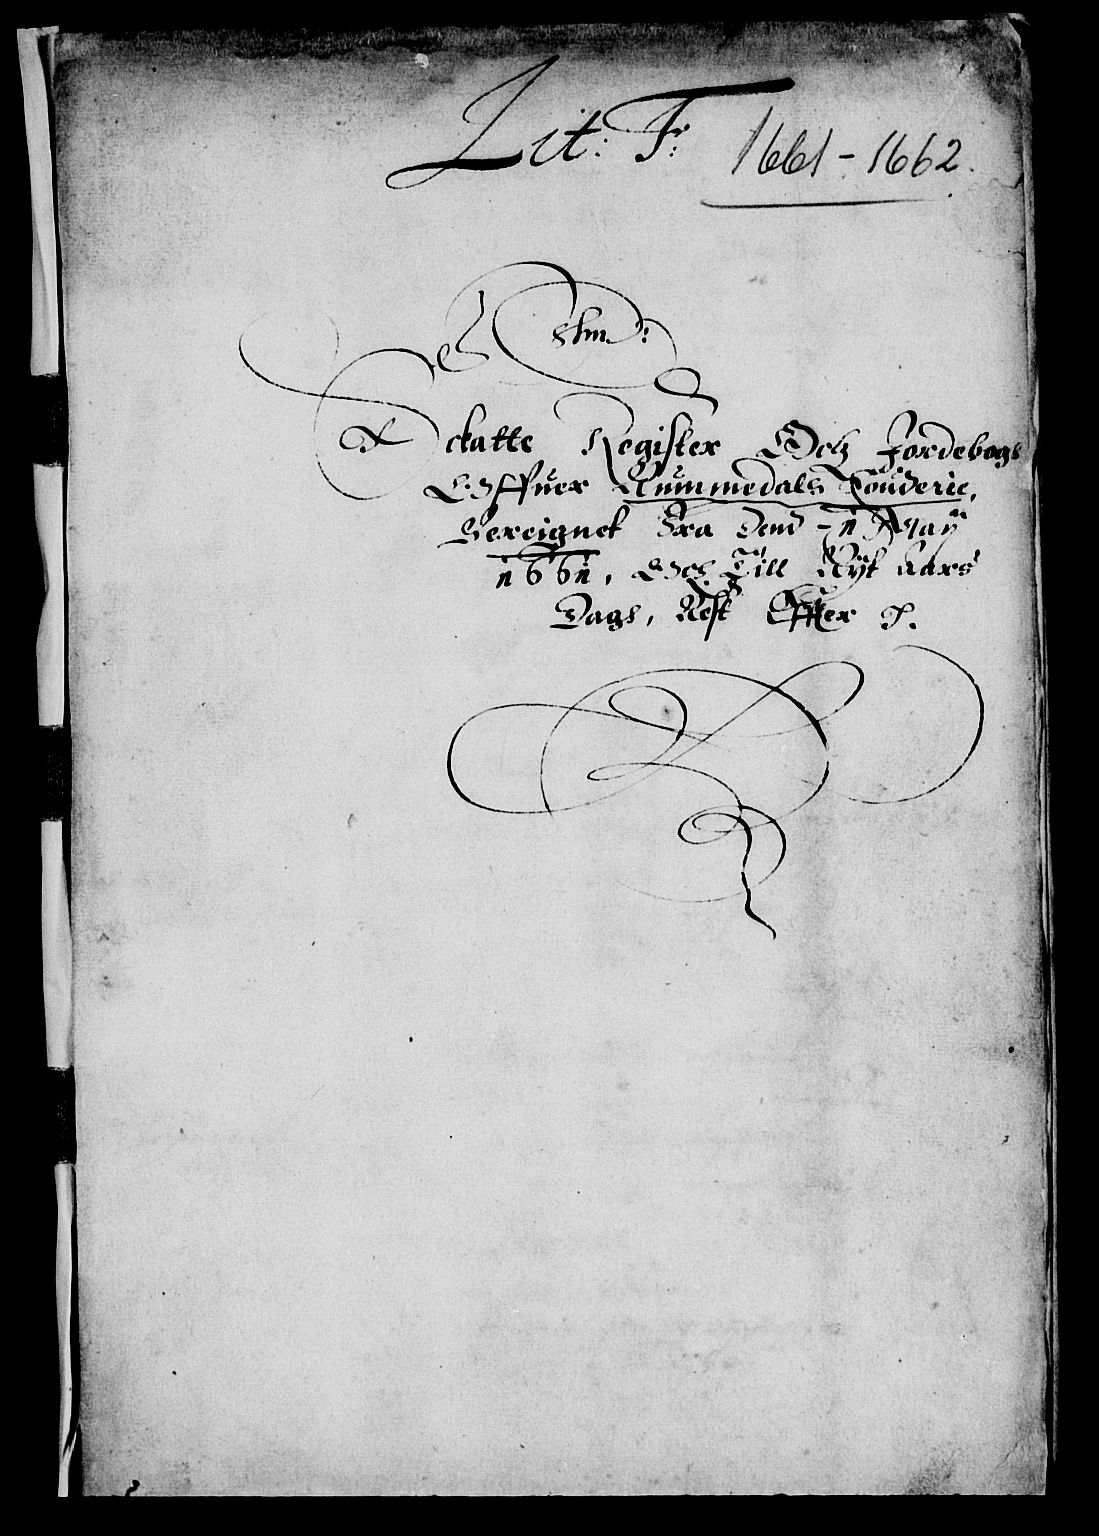 Lit: F: 1661 - 1662.
Schatte Register Och Jordebogs
Offuer Nummedals Fouderie,
Bereignet Fra Dend 1 Maÿ
1661, Och Till Nÿt Aars
Dags, Nest Effter